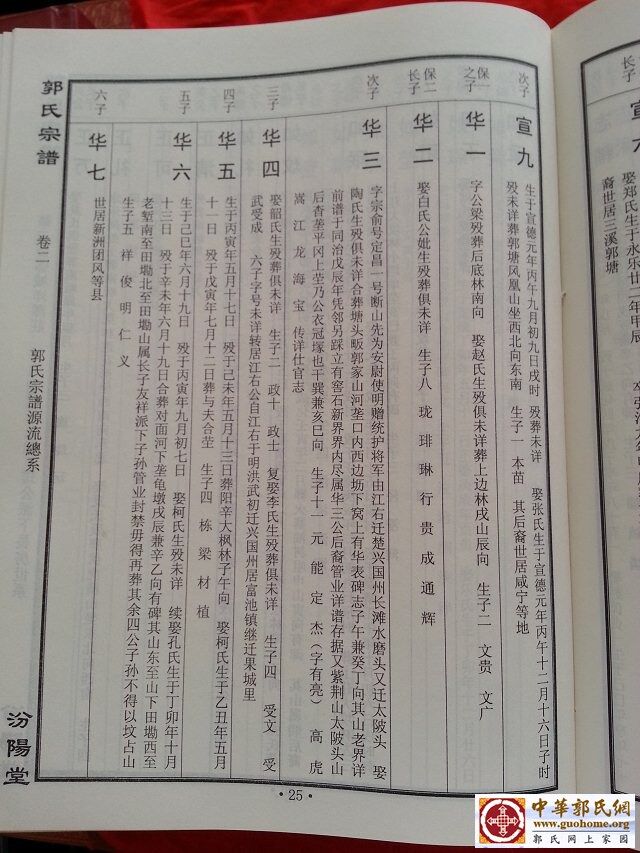 次子
宣九
生于宣德元年丙午九月初九日戌时 殁葬未详 娶张氏生于宣德元年丙午十二月十六日子时
殁未详葬郭塘凤凰山坐西北向东南 生子一 本苗 其后裔世居咸宁等地
保一之子
华一
字公梁殁葬后底林南向 娶赵氏生殁俱未详葬上边林戌山辰向 生子二 文贵 文广
保二长子
华二
娶白氏公妣生殁葬俱未详 生子八 珑 琲 琳 行 贵 成 通 辉
次子
华三
字宗俞号定昌一号断山先为安尉使明赠统护将军由江右迁楚兴国州长滩水磨头又迁太陂头 娶
陶氏生殁俱未详合葬塘头畈郭家山河垄口内西边坜下窝上有华表碑志子午兼癸丁向其山老界详
前谱于同治戊辰年凭邻另踩立有窑石新界界内尽属华三公后裔管业详谱存据又紫荆山太陂头山
后杳垄平冈上茔乃公衣冠塚也干巽兼亥巳向 生子十一 元 能 定 杰(字有亮) 高 虎
嵩 江 龙 海 宝 传详仕官志
三子
华四
娶韶氏生殁葬俱未详 生子二 政十 政士 复娶李氏生殁俱未详 生子四 受文 受
武受成 六子字号未详转居江右公自江右于明洪武初迁兴国州居富池镇继迁果城里
四子
华五
生于丙寅年五月十七日 殁于己未年五月十三日葬阳辛大枫林子午向 娶柯氏生于乙丑年五月
十一日 殁于戊寅年七月十二日葬与夫合茔 生子四 栋 梁 材 植
五子
华六
生于己巳年六月十九日 殁于丙寅年九月初七日 娶柯氏生殁未详 续娶孔氏生于丁卯年十月
十三日 殁于辛未年六月十九日合葬对面河下垄龟墩戌辰兼辛乙向有碑其山东至山下田塝西至
老堑南至田塝北至田塝山属长子友祥派下子孙管业封禁毋得再葬其余四公子孙不得以坟占山
生子五 祥 俊 明 仁 义
六子
华七
世居新洲团风等县
郭氏宗譜
卷二
郭氏宗譜源流總系
汾陽堂
·25·
长子
宣六
娶郑氏生于永乐廿二年甲辰
裔世居三溪郭塘
中華郭氏網
www.guohome.org
郭氏网上家园